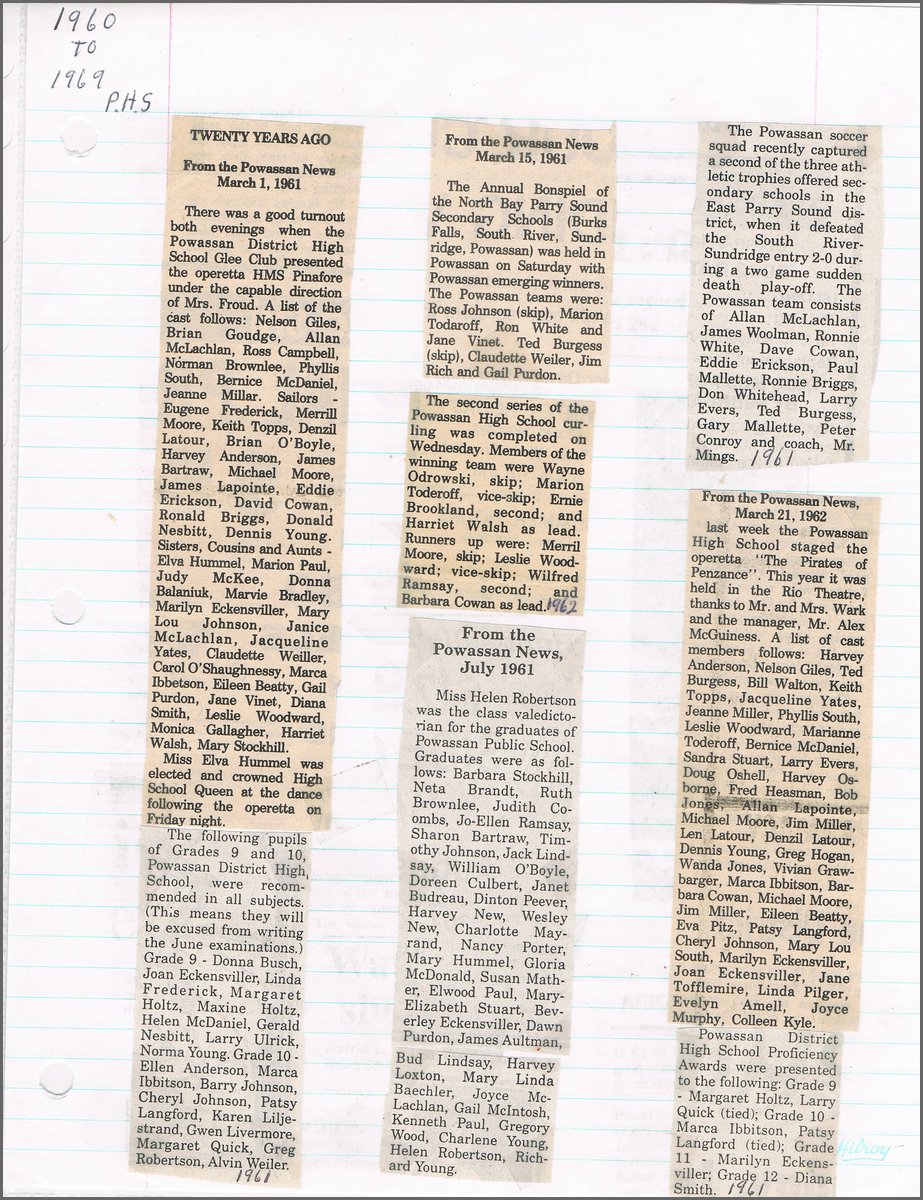 1960
TO
1969
P.H.S
TWENTY YEARS AGO
From the Powassan News
March 1, 1961
There was a good turnout
both evenings when the
Powassan District High
School Glee Club presented
the operetta HMS Pinafore
under the capable direction
of Mrs. Froud. A list of the
cast follows: Nelson Giles,
Brian Goudge, Allan
McLachlan, Ross Campbell,
Norman Brownlee, Phyllis
South, Bernice McDaniel,
Jeanne Millar. Sailors -
Eugene Frederick, Merrill
Moore, Keith Topps, Denzil
Latour, Brian O'Boyle,
Harvey Anderson, James
Bartraw, Michael Moore,
James Lapointe, Eddie
Erickson, David Cowan,
Ronald Briggs, Donald
Nesbitt, Dennis Young.
Sisters, Cousins and Aunts -
Elva Hummel, Marion Paul,
Judy McKee, Donna
Balaniuk, Marvie Bradley,
Marilyn Eckensviller, Mary
Lou Johnson, Janice
McLachlan, Jacqueline
Yates, Claudette Weiller,
Carol O'Shaughnessy, Marca
Ibbetson, Eileen Beatty, Gail
Purdon, Jane Vinet, Diana
Smith, Leslie Woodward,
Monica Gallagher, Harriet
Walsh, Mary Stockhill.
Miss Elva Hummel was
elected and crowned High
School Queen at the dance
following the operetta on
Friday night.
The following pupils
of Grades 9 and 10,
Powassan District High,
School, were recom-
mended in all subjects.
(This means they will
be excused from writing
the June examinations.)
Grade 9 - Donna Busch,
Joan Eckensviller, Linda
Frederick, Margaret
Holtz, Maxine Holtz,
Helen McDaniel, Gerald
Nesbitt, Larry Ulrick,
Norma Young. Grade 10 -
Ellen Anderson, Marca
Ibbitson, Barry Johnson,
Cheryl Johnson, Patsy
Langford, Karen Lilje-
strand, Gwen Livermore,
Margaret Quick, Greg
Robertson, Alvin Weiler.
1961
From the Powassan News
March 15, 1961
The Annual Bonspiel of
the North Bay Parry Sound
Secondary Schools (Burks
Falls, South River, Sund-
ridge, Powassan) was held in
Powassan on Saturday with
Powassan emerging winners.
The Powassan teams were:
Ross Johnson (skip), Marion
Todaroff, Ron White and
Jane Vinet. Ted Burgess
(skip), Claudette Weiler, Jim
Rich and Gail Purdon.
The second series of the
Powassan High School cur-
ling was completed on
Wednesday. Members of the
winning team were Wayne
Odrowski, skip; Marion
Toderoff, vice-skip; Ernie
Brookland, second; and
Harriet Walsh as lead.
Runners up were: Merril
Moore, skip; Leslie Wood-
ward; vice-skip; Wilfred
Ramsay, second; and
Barbara Cowan as lead. 1962
From the
Powassan News,
July 1961
Miss Helen Robertson
was the class valedicto-
rian for the graduates of
Powassan Public School.
Graduates were as fol-
lows: Barbara Stockhill,
Neta Brandt, Ruth
Brownlee, Judith Co-
ombs, Jo-Ellen Ramsay,
Sharon Bartraw, Tim-
othy Johnson, Jack Lind-
say, William O'Boyle,
Doreen Culbert, Janet
Budreau, Dinton Peever,
Harvey New, Wesley
New, Charlotte May-
rand, Nancy Porter,
Mary Hummel, Gloria
McDonald, Susan Math-
er, Elwood Paul, Mary-
Elizabeth Stuart, Bev-
erley Eckensviller, Dawn
Purdon, James Aultman,
Bud Lindsay, Harvey
Loxton, Mary Linda
Baechler, Joyce Mc-
Lachlan, Gail McIntosh,
Kenneth Paul, Gregory
Wood, Charlene Young,
Helen Robertson, Rich-
ard Young.
The Powassan soccer
squad recently captured
a second of the three ath-
letic trophies offered sec-
ondary schools in the
East Parry Sound dis-
trict, when it defeated
the South River-
Sundridge entry 2-0 dur-
ing a two game sudden
death play-off. The
Powassan team consists
of Allan McLachlan,
James Woolman, Ronnie
White, Dave Cowan,
Eddie Erickson, Paul
Mallette, Ronnie Briggs,
Don Whitehead, Larry
Evers, Ted Burgess,
Gary Mallette, Peter
Conroy and coach, Mr.
Mings. 1961
From the Powassan News,
March 21, 1962
last week the Powassan
High School staged the
operetta "The Pirates of
Penzance". This year it was
held in the Rio Theatre,
thanks to Mr. and Mrs. Wark
and the manager, Mr. Alex
McGuiness. A list of cast
members follows: Harvey
Anderson, Nelson Giles, Ted
Burgess, Bill Walton, Keith
Topps, Jacqueline Yates,
Jeanne Miller, Phyllis South,
Leslie Woodward, Marianne
Toderoff, Bernice McDaniel,
Sandra Stuart, Larry Evers,
Doug Oshell, Harvey Os-
borne, Fred Heasman, Bob
Jones; Allan Lapointe,
Michael Moore, Jim Miller,
Len Latour, Denzil Latour,
Dennis Young, Greg Hogan,
Wanda Jones, Vivian Graw-
barger, Marca Ibbitson, Bar-
bara Cowan, Michael Moore,
Jim Miller, Eileen Beatty,
Eva Pitz, Patsy Langford,
Cheryl Johnson, Mary Lou
South, Marilyn Eckensviller,
Joan Eckensviller, Jane
Tofflemire, Linda Pilger,
Evelyn Amell, Joyce
Murphy, Colleen Kyle.
Powassan District
High School Proficiency
Awards were presented
to the following: Grade 9
- Margaret Holtz, Larry
Quick (tied); Grade 10 -
Marca Ibbitson, Patsy
Langford (tied); Grade
11 - Marilyn Eckens-
viller; Grade 12 - Diana
Smith. 1961
Hilroy